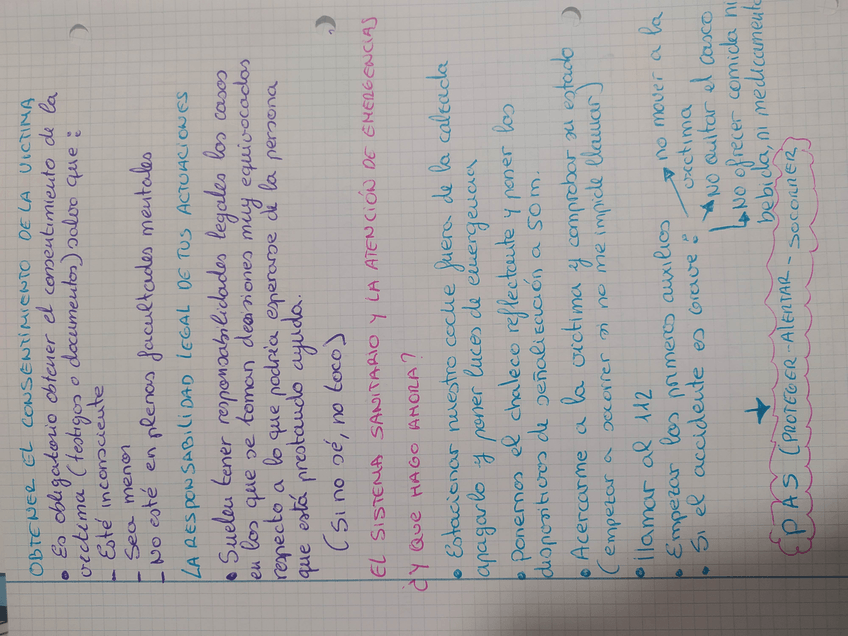 OBTENER EL CONSENTIMIENTO DE LA VICTIMA
• Es obligatorio obtener el consentimiento de la
víctima (testigos o documentos) salvo que:
- Esté inconsciente
- Sea menor
- No esté en plenas facultades mentales
LA RESPONSABILIDAD LEGAL DE TUS ACTUACIONES
• Suelen tener responsabilidades legales los casos
en los que se toman decisiones muy equivocadas
respecto a lo que podría esperarse de la persona
que está prestando ayuda.
(Si no sé, no toco)
EL SISTEMA SANITARIO Y LA ATENCIÓN DE EMERGENCIAS
¿Y QUE HAGO AHORA?
• Estacionar nuestro coche fuera de la calzada
apagarlo y poner luces de emergencia
• Ponernos el chaleco reflectante y poner los
dispositivos de señalización a 50 m.
• Acercarme a la víctima y comprobar su estado
(empezar a socorrer si no me impide llamar)
• llamar al 112
• Empezar los primeros auxilios
• Si el accidente es grave: → no mover a la
víctima
→ NO quitar el casco
→ NO ofrecer comida ni
bebida, ni medicamento
PAS (PROTEGER-ALERTAR-SOCORRER